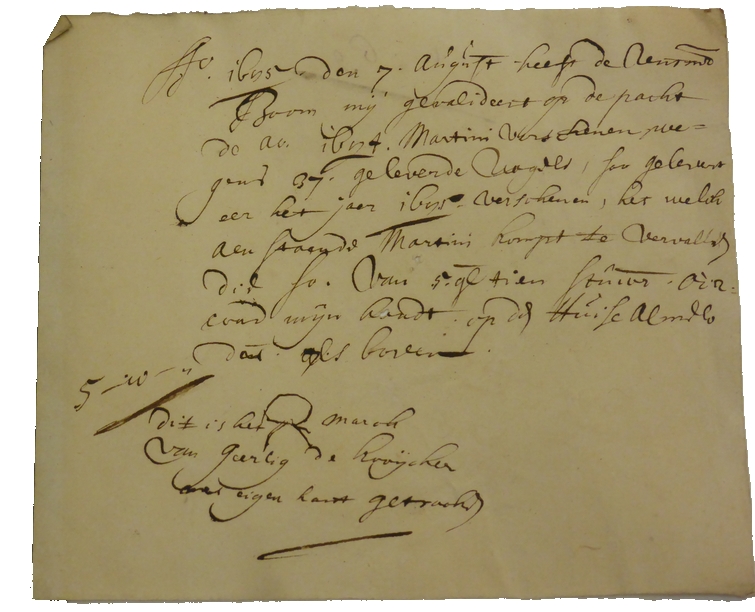 Ao. 1695. den 7. August heeft de Rentmr
Boom mij gevalideert op de pacht
de ao. 1694. Martini verschenen, we=
gens 37. geleverde Vogels, soo gelevert
eer het jaer 1695. verschenen, het welck
aenstaende Martini kompt te vervallen
die so. van 5. gl tien stuver. Oir=
cond mijn handt. op den Huise Almelo
dat. als boven.
5 - 10 - "
dit is het march
van Geerlig de Kooijcker
eigen hant getrocken